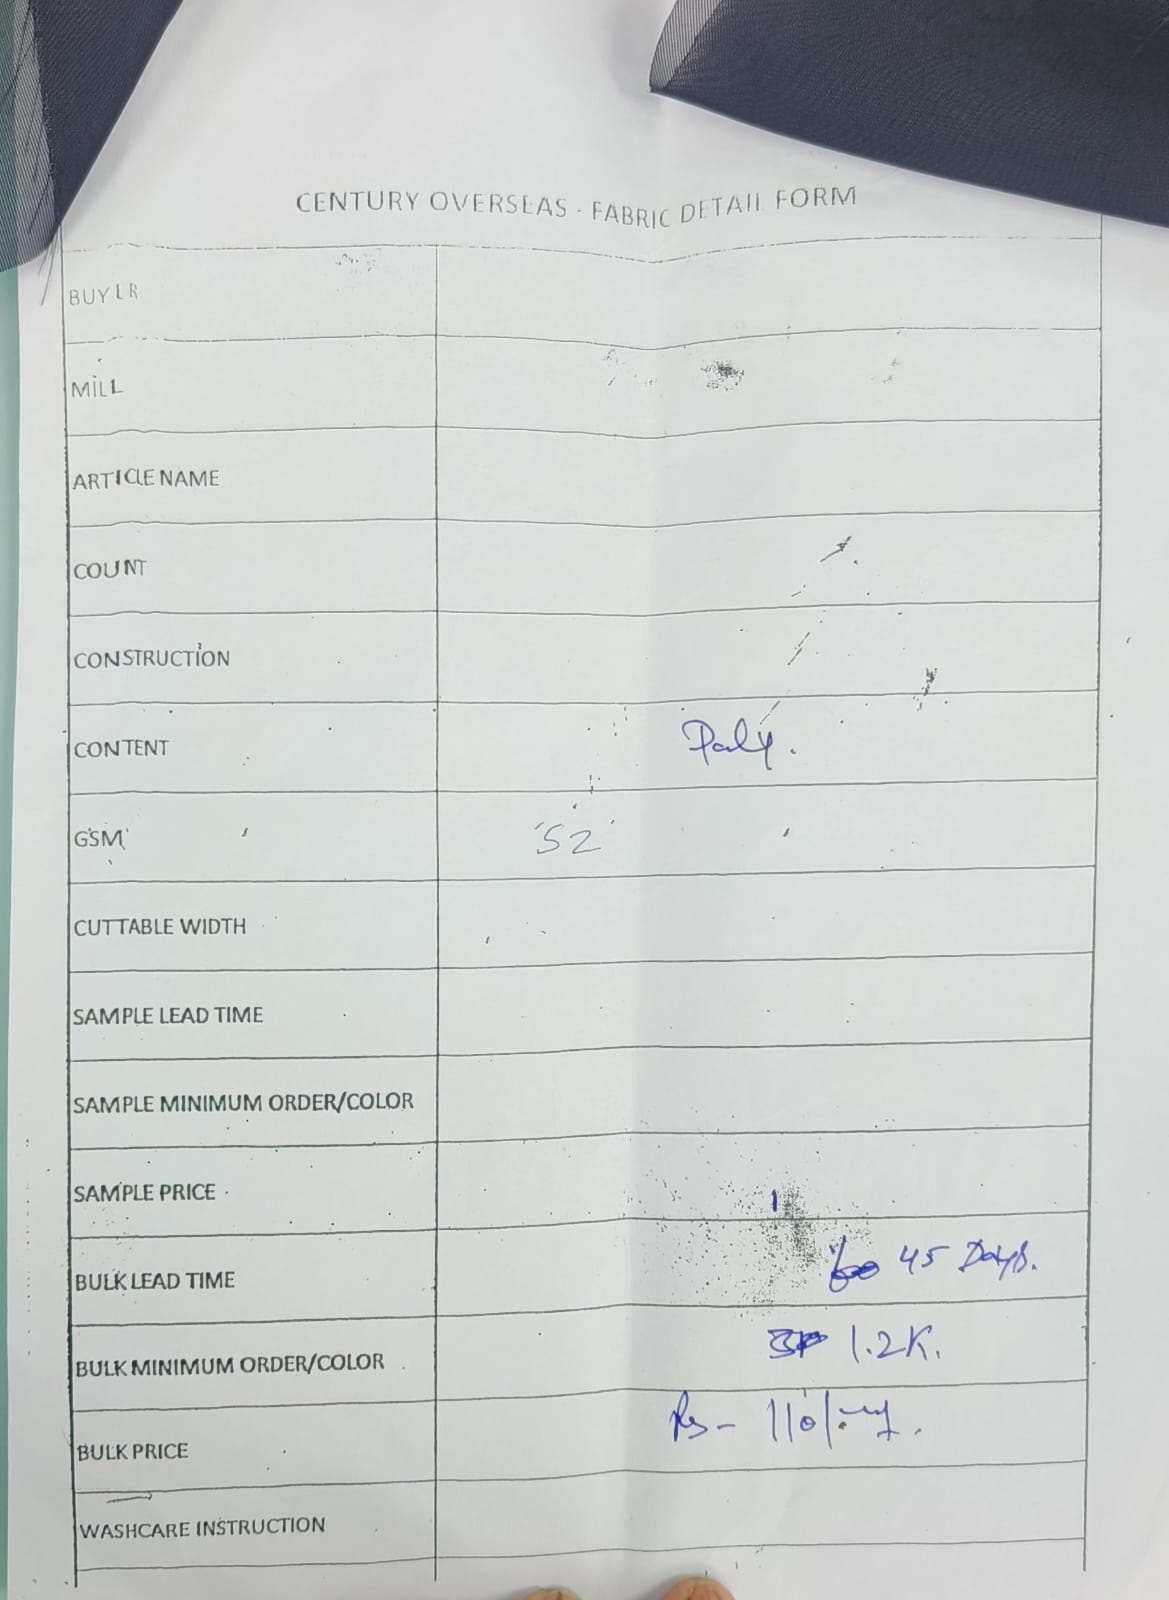 CENTURY OVERSEAS - FABRIC DETAIL FORM
BUYER
MILL
ARTICLE NAME
COUNT
CONSTRUCTION
CONTENT Poly.
GSM 52
CUTTABLE WIDTH
SAMPLE LEAD TIME
SAMPLE MINIMUM ORDER/COLOR
SAMPLE PRICE
BULK LEAD TIME 45 Days.
BULK MINIMUM ORDER/COLOR 1.2K.
BULK PRICE Rs- 110/
WASHCARE INSTRUCTION